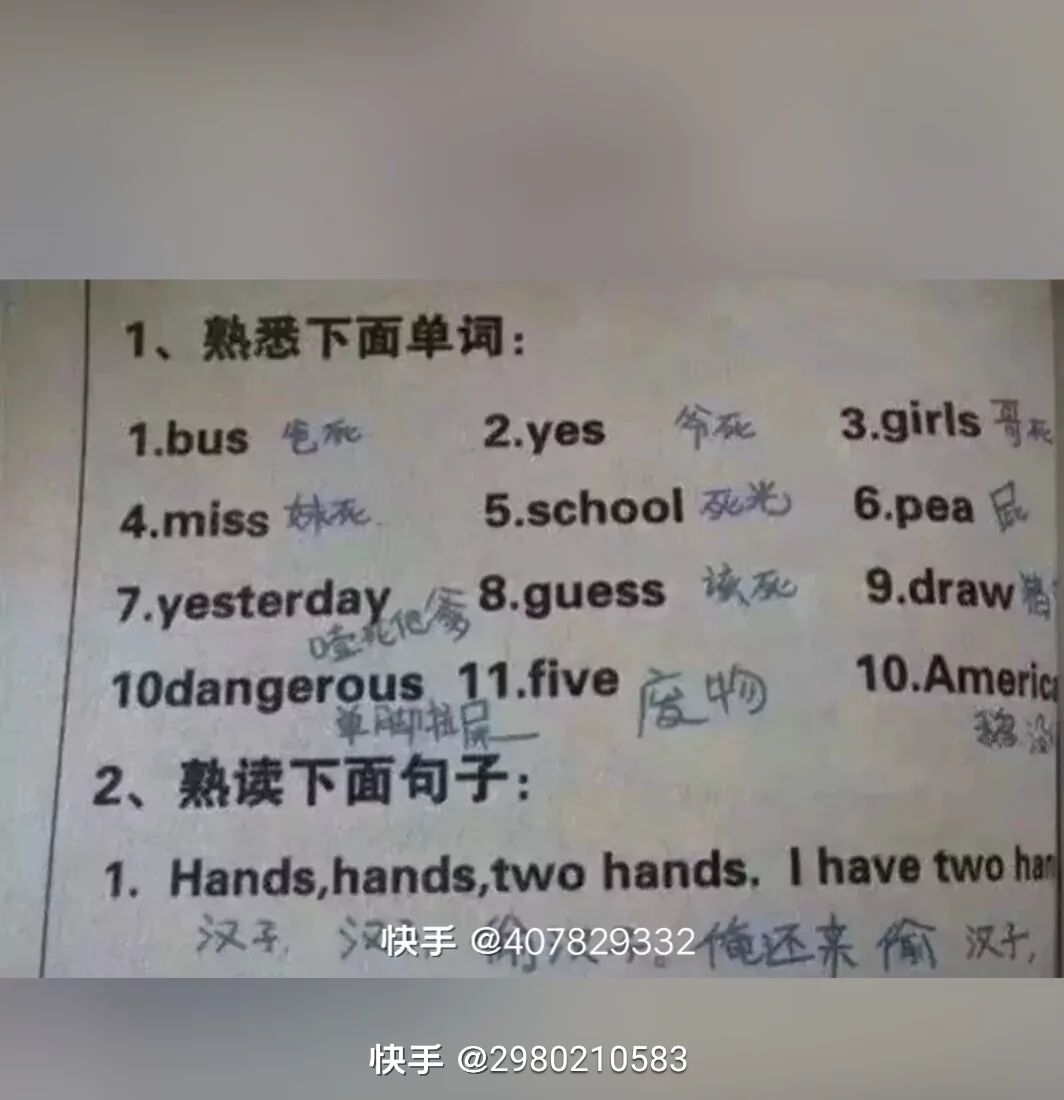 1、熟悉下面单词：
1.bus 爸死 2.yes 爷死 3.girls 哥死
4.miss 妹死 5.school 死光 6.pea 屁
7.yesterday 噎死他爹 8.guess 该死 9.draw
10dangerous 单脚拉屎 11.five 废物 10.Americ
2、熟读下面句子：
1. Hands,hands,two hands. I have two han
汉子, 汉子 偷 俺还来偷 汉子,
快手 @407829332
快手 @2980210583